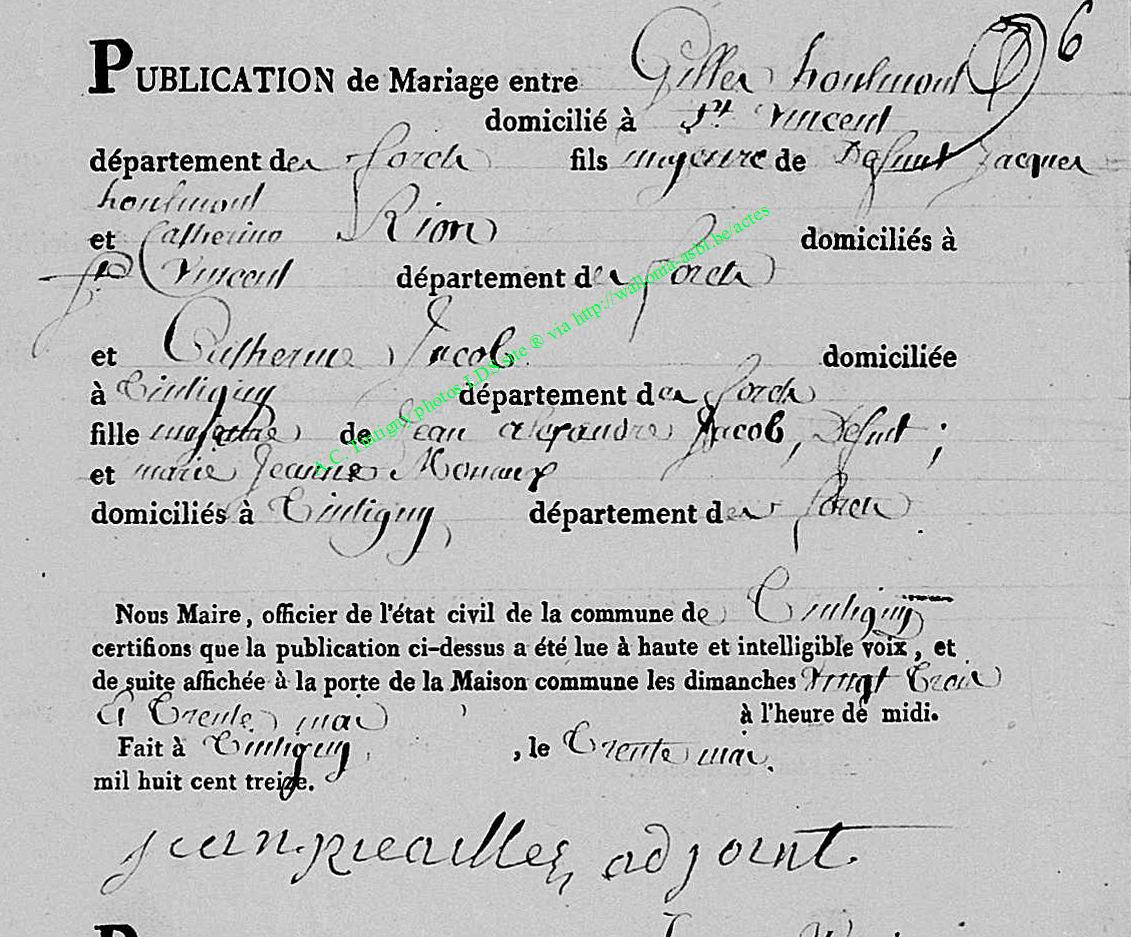 6
PUBLICATION de Mariage entre Gilles houlmont
domicilié à St. Vincent
département des forets fils majeure de Defunt Jacques
houlmont
et Catherine Rion domiciliés à
St Vincent département des forets
et Catherine Jacob domiciliée
à Tintigny département des forets
fille majeure de Jean alexandre Jacob, Defunt ;
et marie Jeanne
domiciliés à Tintigny département des forets
Nous Maire, officier de l'état civil de la commune de Tintigny
certifions que la publication ci-dessus a été lue à haute et intelligible voix, et
de suite affichée à la porte de la Maison commune les dimanches vingt trois
et trente mai à l'heure de midi.
Fait à Tintigny, , le trente mai.
mil huit cent treize.
adjoint.
A.C. Tintigny photos LDS site ® via http://wallonia-asbl.be/actes